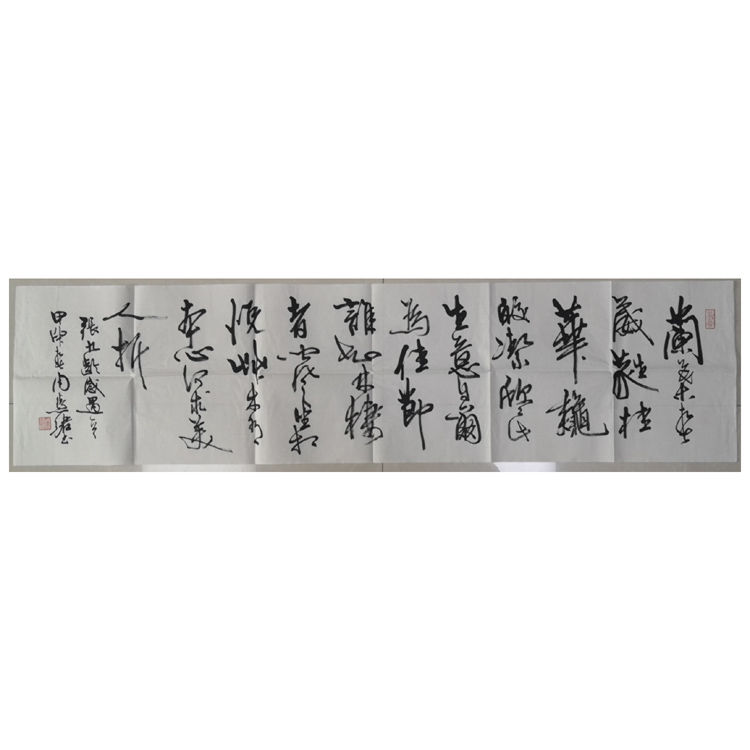 蘭葉春
葳蕤桂
華穐
皎潔欣々此
生意自爾
為佳節
誰知林棲
者聞風坐相
悦草木有
本心何求美
人折
張九齡感遇
甲辰